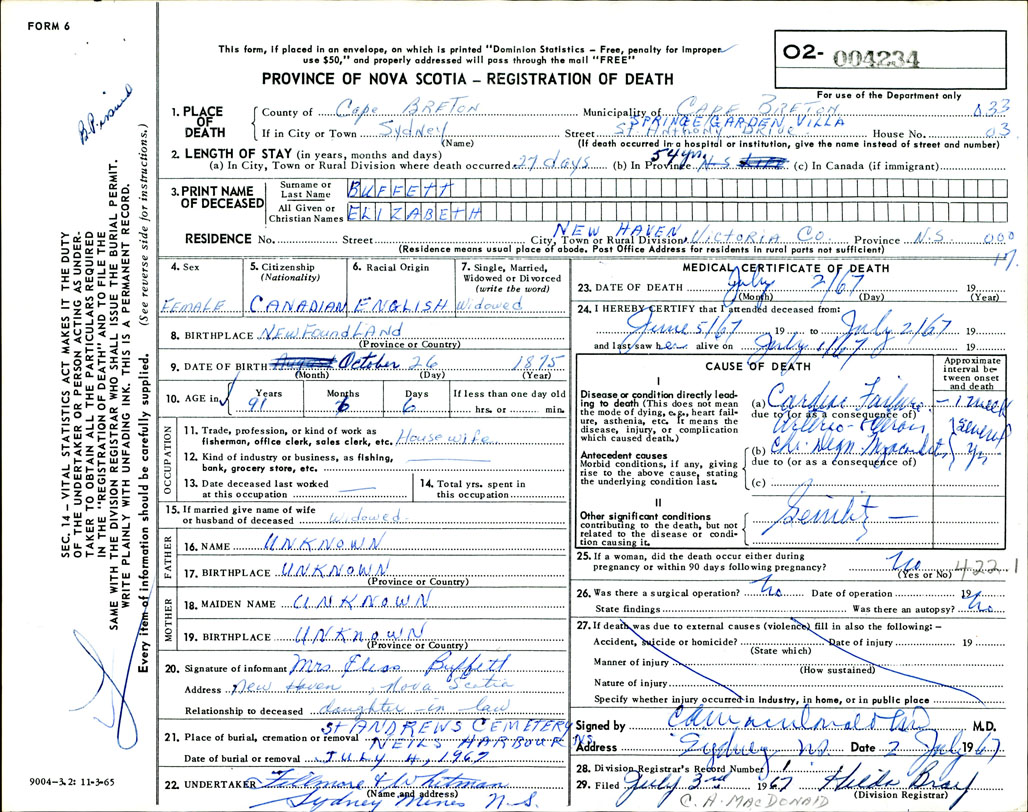 FORM 6
This form, if placed in an envelope, on which is printed "Dominion Statistics – Free, penalty for improper
use $50," and properly addressed will pass through the mail "FREE"
PROVINCE OF NOVA SCOTIA – REGISTRATION OF DEATH
O2- 004234
For use of the Department only
B.P. issued
SEC. 14 – VITAL STATISTICS ACT MAKES IT THE DUTY
OF THE UNDERTAKER OR PERSON ACTING AS UNDER-
TAKER TO OBTAIN ALL THE PARTICULARS REQUIRED
IN THE "REGISTRATION OF DEATH" AND TO FILE THE
SAME WITH THE DIVISION REGISTRAR WHO SHALL ISSUE THE BURIAL PERMIT.
WRITE PLAINLY WITH UNFADING INK. THIS IS A PERMANENT RECORD.
Every item of information should be carefully supplied. (See reverse side for instructions.)
1. PLACE OF DEATH
County of Cape BRETON Municipality of CAPE BRETON 033
SPRINGE GARDEN VILLA
If in City or Town Sydney Street St. Anthony Drive House No. 03
(Name) (If death occurred in a hospital or institution, give the name instead of street and number)
2. LENGTH OF STAY (in years, months and days)
(a) In City, Town or Rural Division where death occurred 27 days (b) In Province 54 yrs N S (c) In Canada (if immigrant)
3. PRINT NAME OF DECEASED
Surname or Last Name BUFFETT
All Given or Christian Names ELIZABETH
RESIDENCE No. Street City, Town or Rural Division NEW HAVEN Victoria Co. Province N.S. 000
(Residence means usual place of abode. Post Office Address for residents in rural parts not sufficient) 17.
4. Sex FEMALE
5. Citizenship (Nationality) CANADIAN
6. Racial Origin ENGLISH
7. Single, Married, Widowed or Divorced (write the word) Widowed
8. BIRTHPLACE NEWFoundLAND
(Province or Country)
9. DATE OF BIRTH August October 26 1875
(Month) (Day) (Year)
10. AGE in Years 91 Months Days 6 If less than one day old hrs. or min.
OCCUPATION
11. Trade, profession, or kind of work as
fisherman, office clerk, sales clerk, etc. Housewife
12. Kind of industry or business, as fishing,
bank, grocery store, etc.
13. Date deceased last worked
at this occupation
14. Total yrs. spent in
this occupation
15. If married give name of wife
or husband of deceased Widowed
FATHER
16. NAME UNKNOWN
17. BIRTHPLACE UNKNOWN
(Province or Country)
MOTHER
18. MAIDEN NAME UNKNOWN
19. BIRTHPLACE UNKNOWN
(Province or Country)
20. Signature of informant Mrs Buffett
Address New Haven, Nova Scotia
Relationship to deceased daughter in law
21. Place of burial, cremation or removal St ANDREWS CEMETERY
NEILS HARBOUR N.S.
Date of burial or removal JULY 4, 1967
22. UNDERTAKER Fillmore & Whitman
(Name and address)
Sydney Mines N.S.
9004-3.2: 11-3-65
MEDICAL CERTIFICATE OF DEATH
23. DATE OF DEATH July 2/67 19
(Month) (Day) (Year)
24. I HEREBY CERTIFY that I attended deceased from:
June 5/67 19 to July 2/67 19
and last saw her alive on July 1/67 19
CAUSE OF DEATH
Approximate interval between onset and death
I
Disease or condition directly lead-
ing to death (This does not mean
the mode of dying, e.g., heart fail-
ure, asthenia, etc. It means the
disease, injury, or complication
which caused death.)
(a) Cardiac Failure – 1 week
due to (or as a consequence of)
Arterio-
Antecedent causes
Morbid conditions, if any, giving
rise to the above cause, stating
the underlying condition last.
(b) Chr. Degn. Myocarditis several yrs
due to (or as a consequence of)
(c)
II
Other significant conditions
contributing to the death, but not
related to the disease or condi-
tion causing it.
Senility –
25. If a woman, did the death occur either during
pregnancy or within 90 days following pregnancy? No 422.1
(Yes or No)
26. Was there a surgical operation? No Date of operation 19
State findings Was there an autopsy? No
27. If death was due to external causes (violence) fill in also the following: –
Accident, suicide or homicide? Date of injury 19
(State which)
Manner of injury
(How sustained)
Nature of injury
Specify whether injury occurred in Industry, in home, or in public place
Signed by M.D.
Address Sydney NS. Date 2 July 1967
28. Division Registrar's Record Number 1
29. Filed July 3rd 1967 Hilda
(Division Registrar)
C. H. MACDONALD